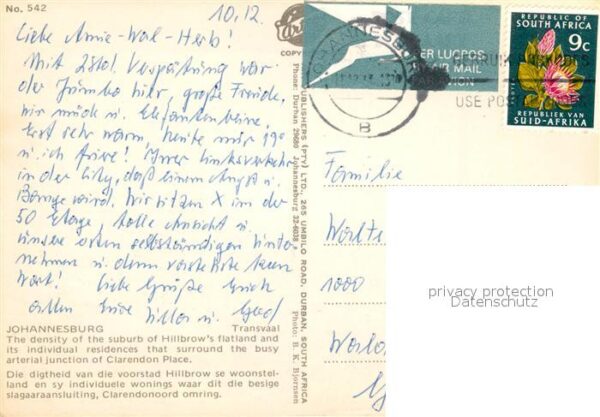 No. 542
10.12.
Liebe Annie-Wal-Herb!
Mit 2 Std. Verspätung war
der Jumbo hier, große Freude,
wir müde u. Elefantenbeine.
Erst sehr warm, heute nur 19°
u. ich friere! Irrer Linksverkehr
in der City, daß einem Angst u.
Bange wird. Wir sitzen X in der
50 Etage, tolle Aussicht u.
unsere ersten selbständigen Unter-
nehmen u. dann verstehste keen
Wort! Liebe Grüße Euch
allen Eure
JOHANNESBURG Transvaal
The density of the suburb of Hillbrow's flatland and
its individual residences that surround the busy
arterial junction of Clarendon Place.
Die digtheid van die voorstad Hillbrow se woonstel-
land en sy individuele wonings waar dit die besige
slagaaraansluiting, Clarendonoord omring.
COPY
PUBLISHERS (PTY) LTD., 265 UMBILO ROAD, DURBAN, SOUTH AFRICA
Phone: Durban 29680 Johannesburg 33-6038 Photo: B. K. Bjornsen
PER LUGPOS
AIR MAIL
JOHANNESBURG
B
USE POSTAL CODES
REPUBLIC OF
SOUTH AFRICA
9c
REPUBLIEK VAN
SUID-AFRIKA
Familie
1000
privacy protection
Datenschutz